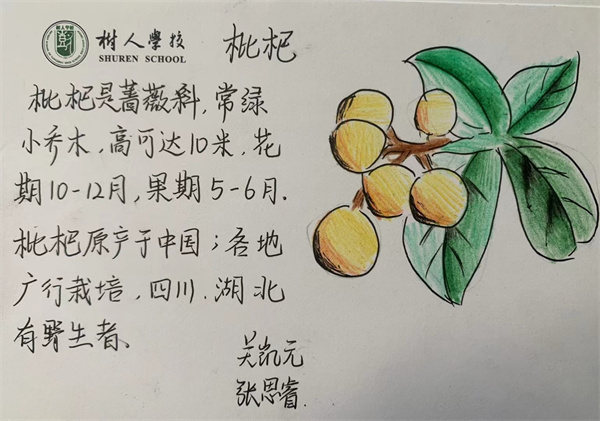 树人学校
SHUREN SCHOOL
枇杷
枇杷是蔷薇科,常绿
小乔木,高可达10米,花
期10-12月,果期5-6月.
枇杷原产于中国;各地
广行栽培,四川.湖北
有野生者、
关凯元
张思睿.